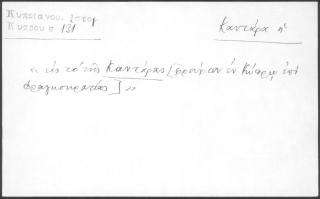 Κυπριανού. Ιστορ
Κύπρου σ 131
Καντάρα ἡ
« εἰς τὸ τῆς Καντάρας [φρούριον ἐν Κύπρῳ ἐπὶ
φραγκοκρατίας] »